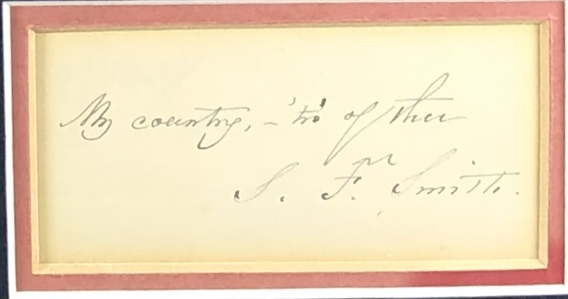 My country, – 'tis of thee
S. F. Smith.